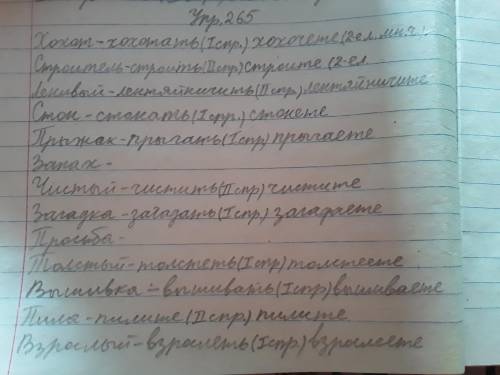 Упр. 265
Хохот-хохотать(I спр.) хохочете(2 е.л. мн.ч.)
Строитель-строить(II спр) строите (2-ел.
Ленивый-лентяйничить(II спр.) лентяйничите
Стон-стонать(I спр.) стонете
Прыжак-прыгать(I спр) прыгаете
Запах-
Чистый-чистить(II спр) чистите
Загадка-загадать(I спр.) загадаете
Просьба-
Толстый-толстеть(I спр) толстеете
Вышивка-вышивать(I спр) вышиваете
Пила-пилите(II спр.) пилите
Взрослый-взрослеть(I спр.) взрослеете